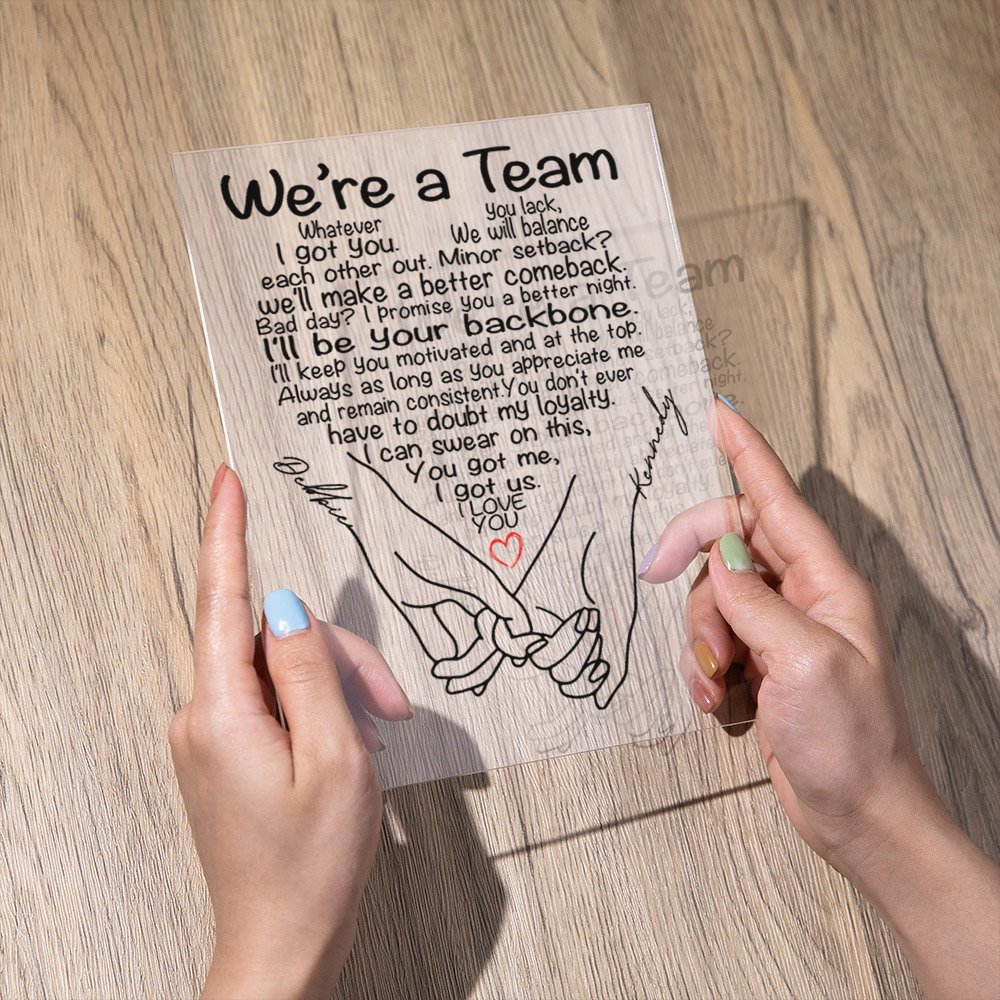 We're a Team
Whatever You lack,
I got you. We will balance
each other out. Minor setback?
we'll make a better comeback.
Bad day? I Promise you a better night.
I'll be your backbone.
I'll keep you motivated and at the top.
Always as long as you appreciate me
and remain consistent. You don't ever
have to doubt my loyalty.
I can swear on this,
You got me,
I got us.
I LOVE
YOU
Debbie
Kennedy